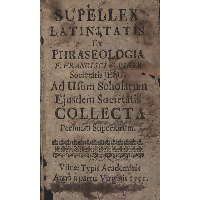 SUPELLEX
LATINITATIS
EX
PHRASEOLOGIA
P. FRANCISCI WAGNER
Societatis JESU,
Ad Usum Scholarum
Ejusdem Societatis
COLLECTA
Permissu Superiorum.
Vilnæ Typis Academicis
Anno à partu Virginis